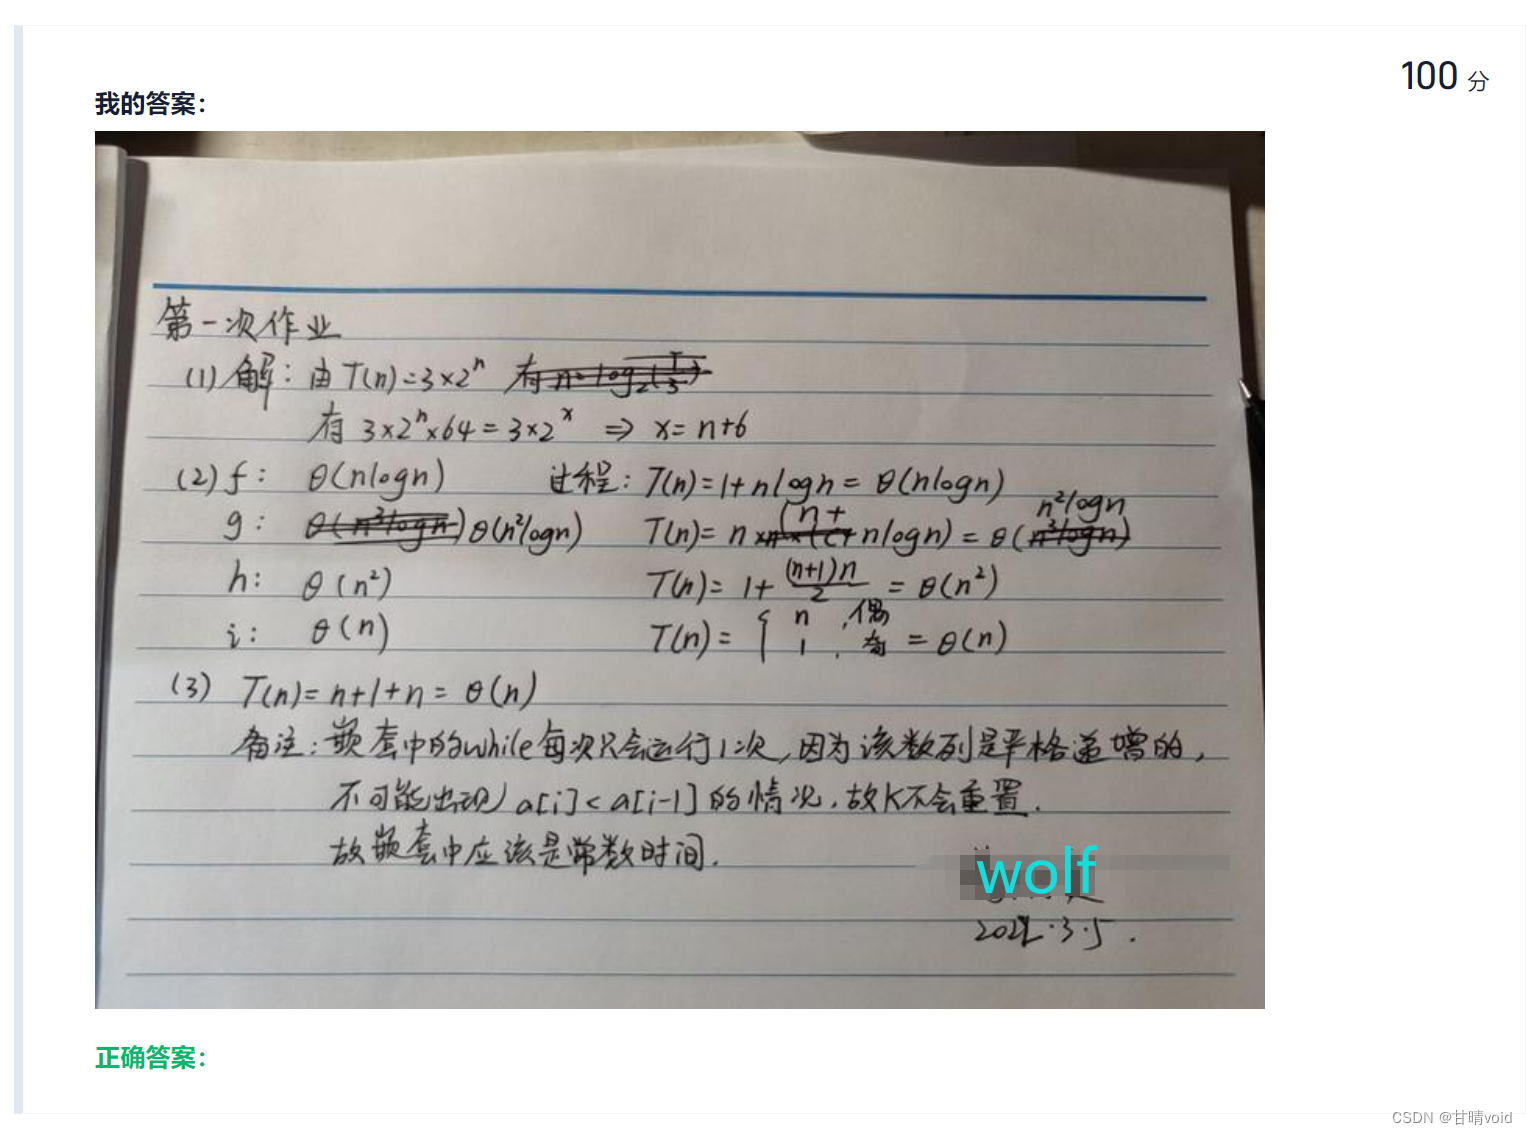 100 分
我的答案：
第一次作业
(1) 解：由 T(n)=3×2ⁿ 有
有 3×2ⁿ×64=3×2ˣ ⇒ x=n+6
(2) f: θ(nlogn) 过程：T(n)=1+nlogn=θ(nlogn)
g: θ(n²logn) T(n)=n (n+ nlogn)=θ(n²logn
h: θ(n²) T(n)=1+(n+1)n/2=θ(n²)
i: θ(n) T(n)={ n ,偶 1 ,奇 =θ(n)
(3) T(n)=n+1+n=θ(n)
备注：嵌套中的while每次只会运行1次,因为该数列是严格递增的，
不可能出现 a[i]<a[i-1]的情况，故K不会重置.
故嵌套中应该是常数时间.
wolf
2022.3.5.
正确答案：
CSDN @甘晴void